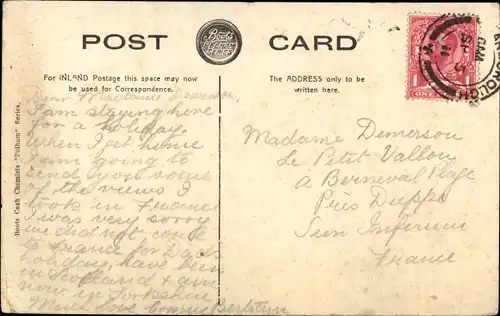 POST CARD
Boots
For INLAND Postage this space may now
be used for Correspondence.
The ADDRESS only to be
written here.
Boots Cash Chemists "Pelham" Series.
Dear Madame Demerson,
I am staying here
for a holiday.
When I get home
I am going to
send you some
of the views I
took in France
I was very sorry
we did not come
to France for Dad's
holiday, have been
in Scotland & am
now in Yorkshire
Much love Connie Bertram
Madame Demerson
Le Petit Vallon
à Berneval Plage
Près Dieppe
Sein Inferieur
France
1
ONE